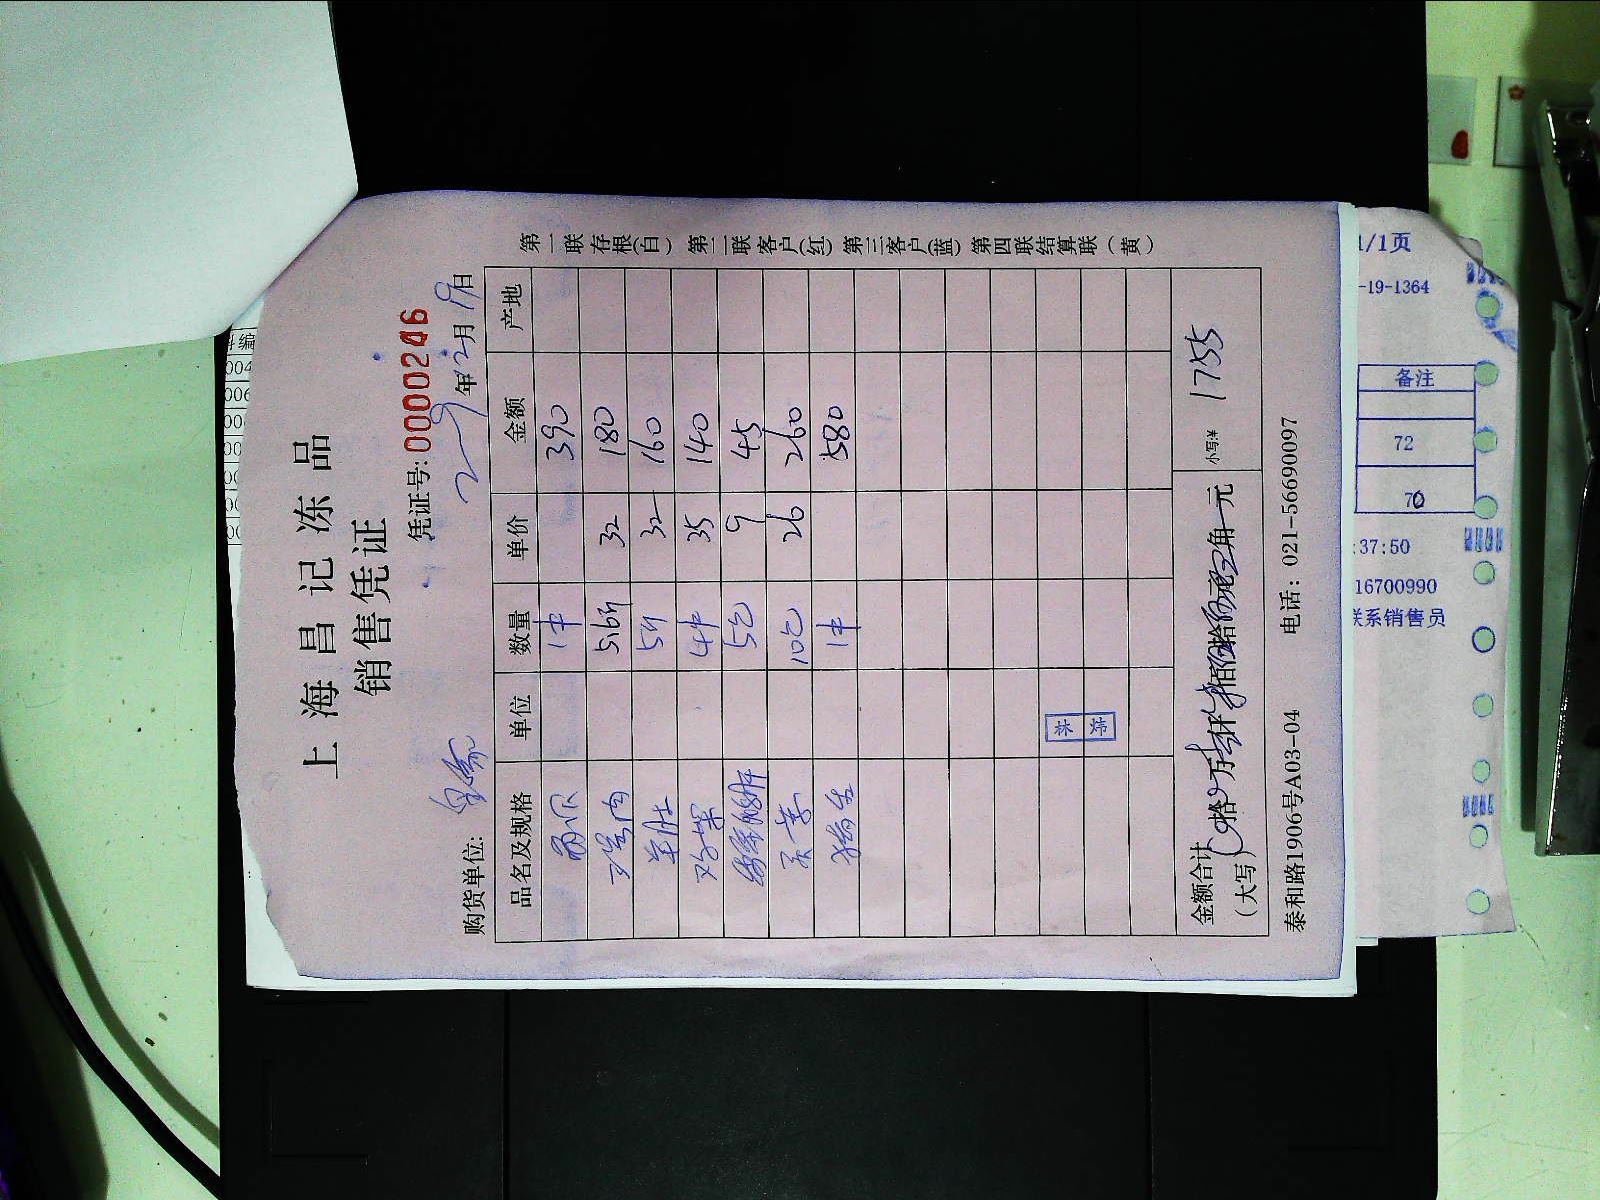 上海昌记冻品
销售凭证
凭证号:0000246
购货单位:
年12月19日
品名及规格 单位 数量 单价 金额 产地
1件 390
5.6斤 32 180
羊肚 5斤 32 160
鸡架 4件 35 140
5包 9 45
10包 26 260
1件 580
金额合计
(大写) 拾 万 仟 佰 拾 元 角 元 小写:¥ 1755
泰和路1906号A03-04 电话:021-56690097
第一联存根(白) 第二联客户(红) 第三客户(蓝) 第四联结算联(黄)
1/1页
-19-1364
备注
72
70
:37:50
16700990
联系销售员